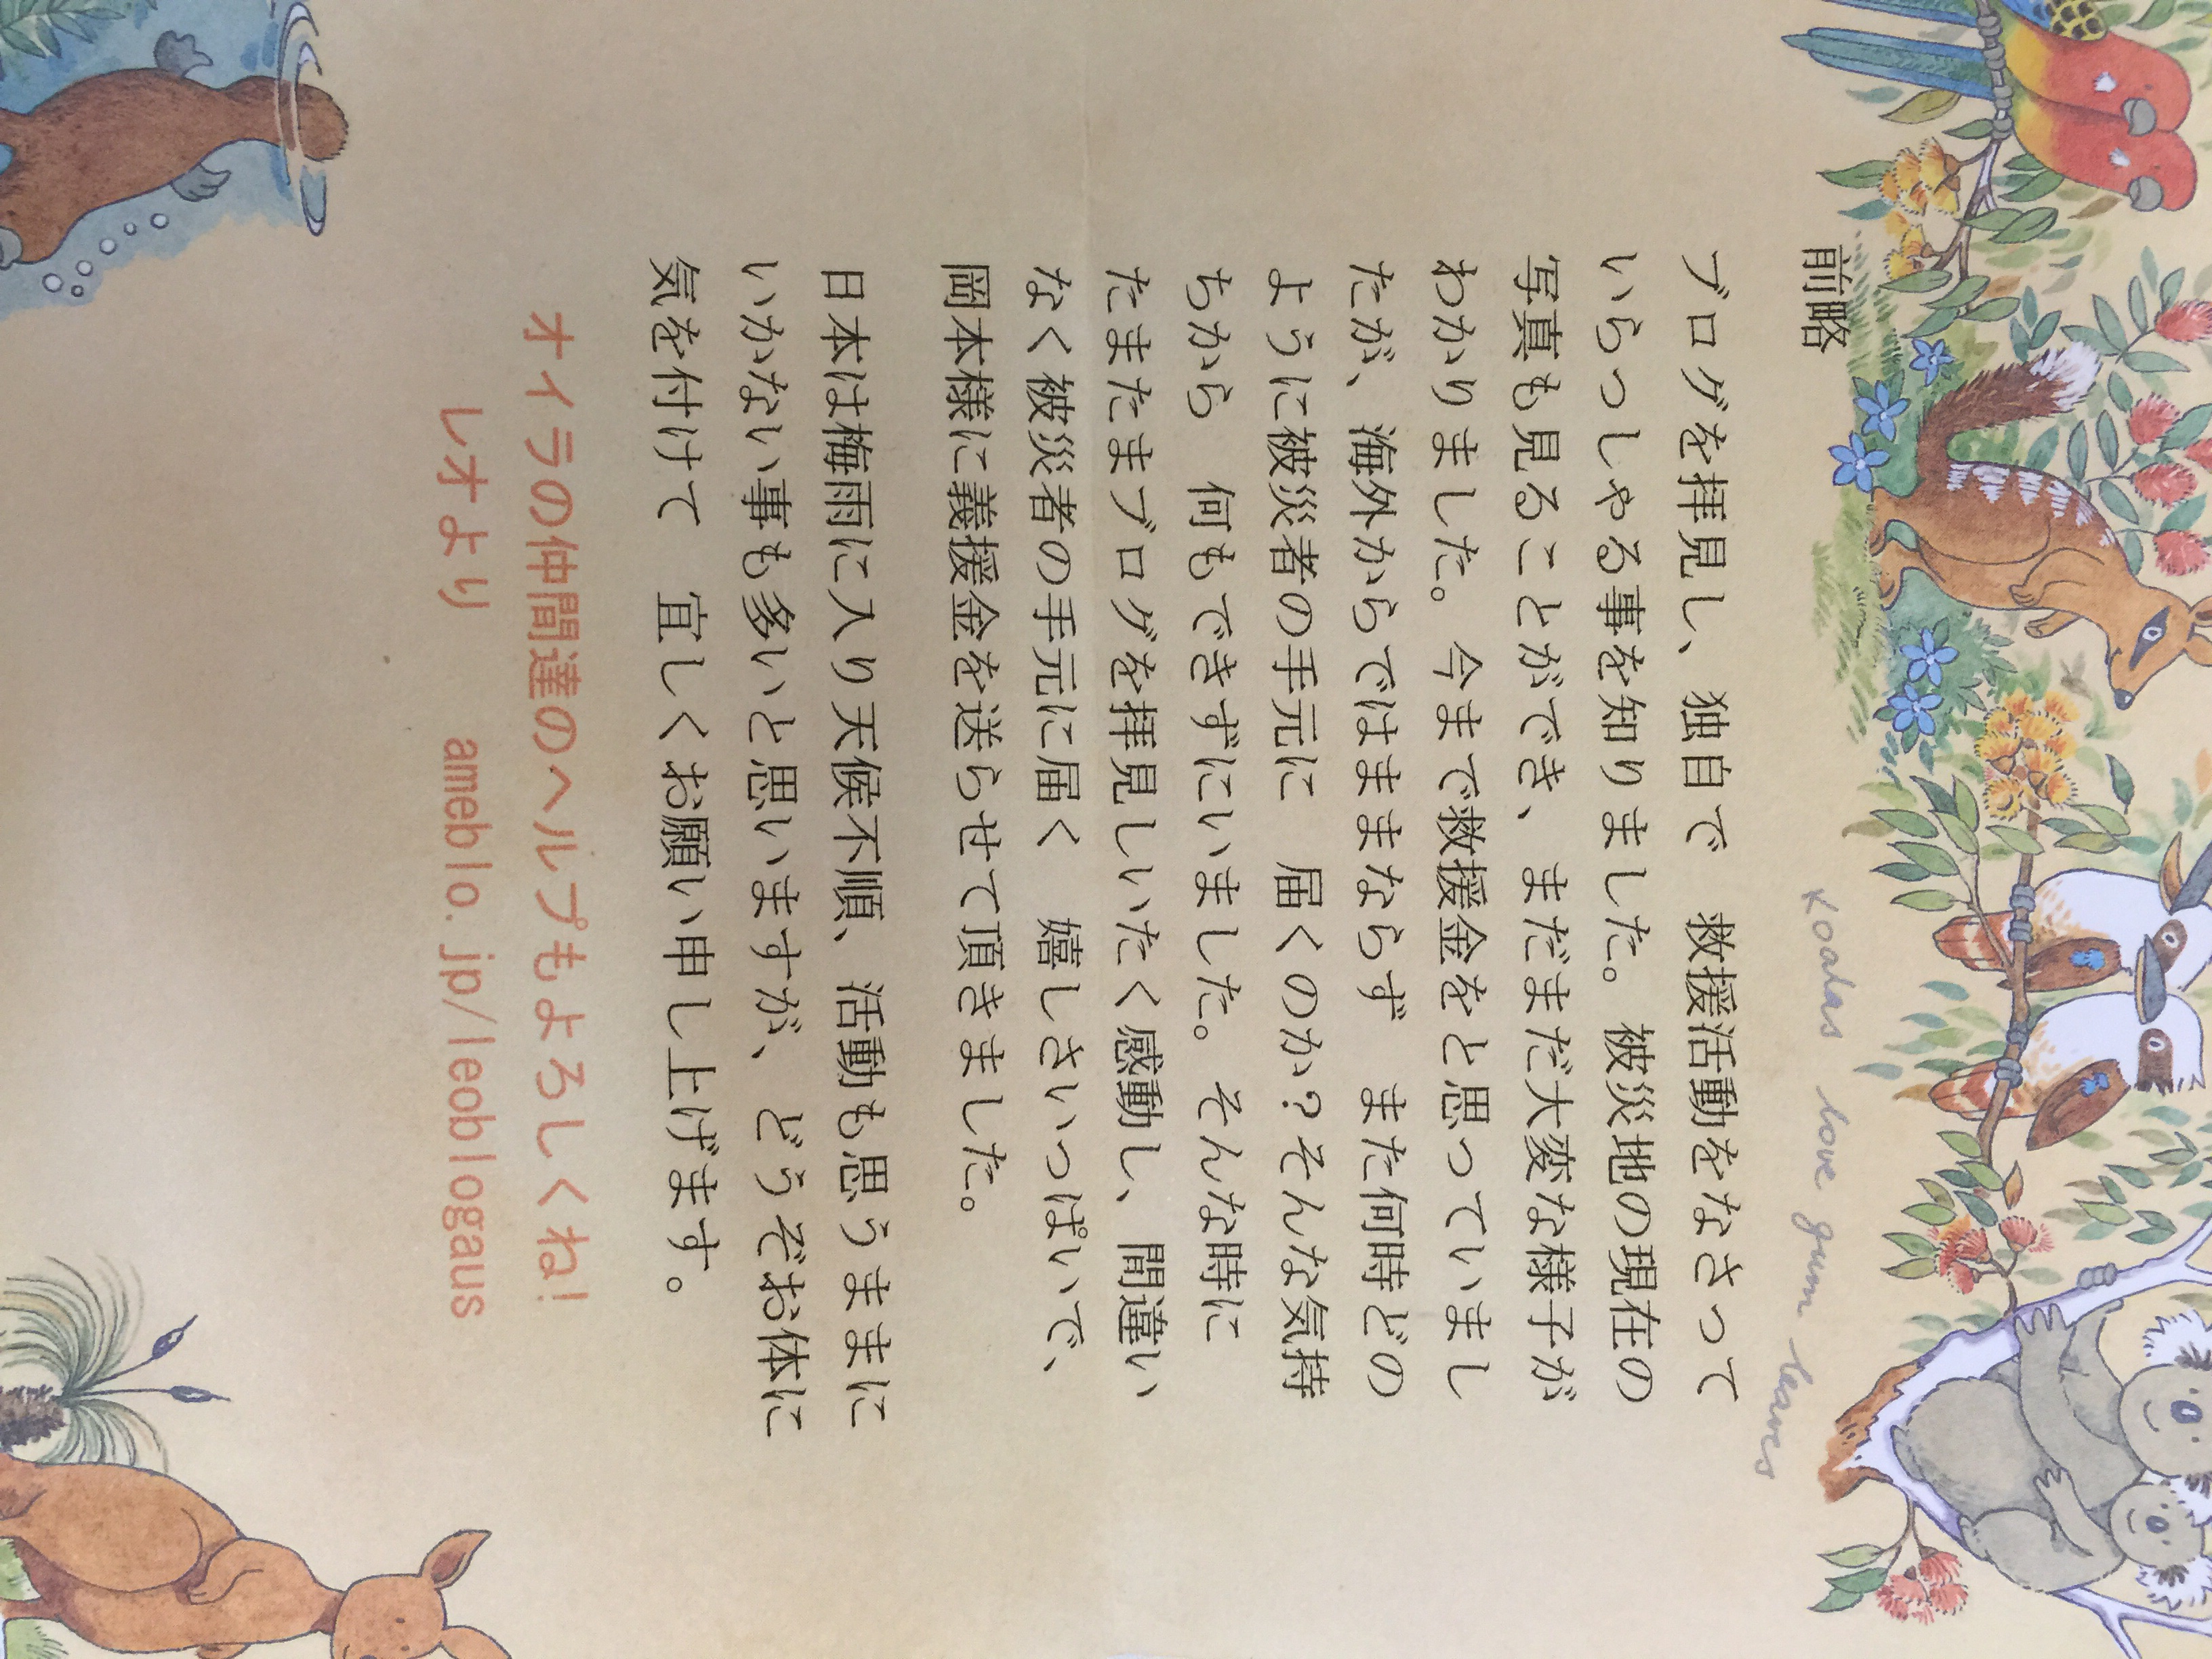 前略
Koalas love gum leaves
ブログを拝見し、独自で　救援活動をなさって
いらっしゃる事を知りました。被災地の現在の
写真も見ることができ、まだまだ大変な様子が
わかりました。今まで救援金をと思っていまし
たが、海外からではままならず　また何時どの
ように被災者の手元に　届くのか？そんな気持
ちから　何もできずにいました。そんな時に
たまたまブログを拝見しいたく感動し、間違い
なく被災者の手元に届く　嬉しさいっぱいで、
岡本様に義援金を送らせて頂きました。
日本は梅雨に入り天候不順、活動も思うままに
いかない事も多いと思いますが、どうぞお体に
気を付けて　宜しくお願い申し上げます。
オイラの仲間達のヘルプもよろしくね!
レオより　　ameblo.jp/leoblogaus